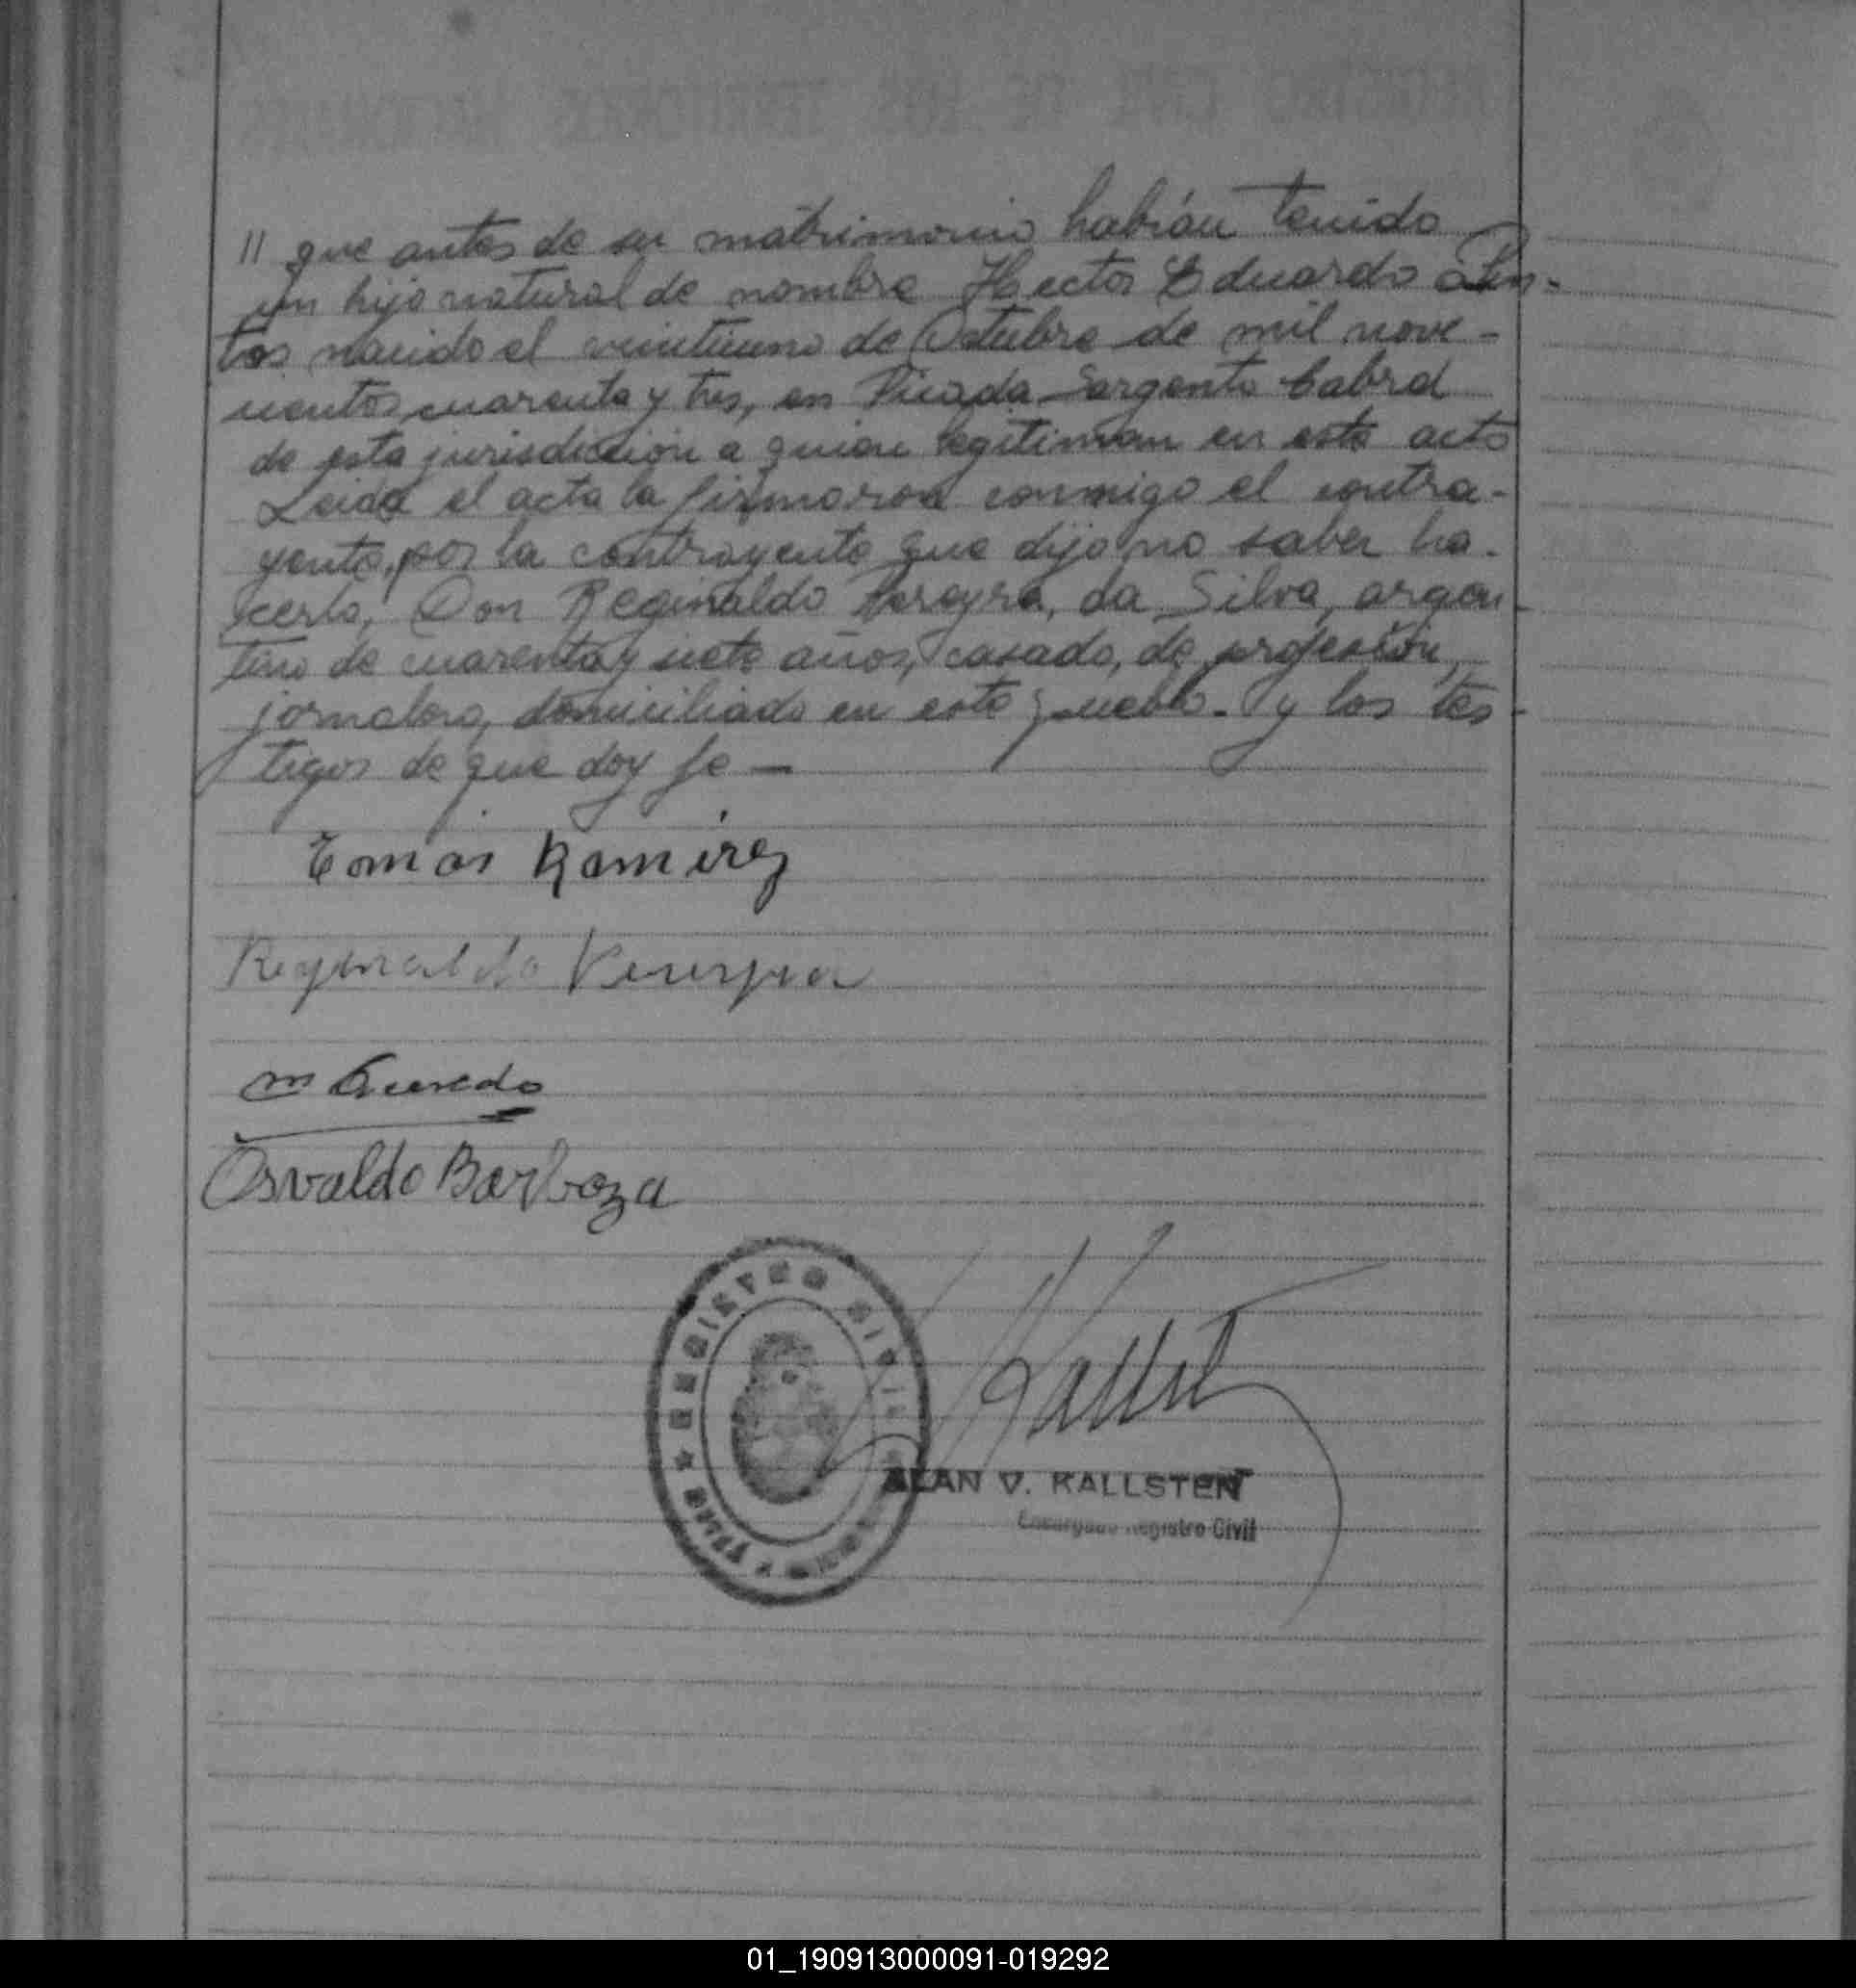 // que antes de su matrimonio habían tenido
un hijo natural de nombre Hector Eduardo
tos nacido el veintiuno de Octubre de mil nove-
cientos cuarenta y tres, en Picada Sargento Cabral
de esta jurisdicción a quien legitiman en este acto
Leida el acta la firmaron conmigo el contra-
yente, por la contrayente que dijo no saber ha-
cerlo, Don Reginaldo Pereyra, da Silva, argen-
tino de cuarenta y siete años, casado, de profesión,
jornalero, domiciliado en este pueblo. y los tes-
tigos de que doy fe —
Tomas Ramirez
Reginaldo Pereyra
Osvaldo Barboza
REGISTRO CIVIL
ALAN V. KALLSTEN
Encargado Registro Civil
01_190913000091-019292